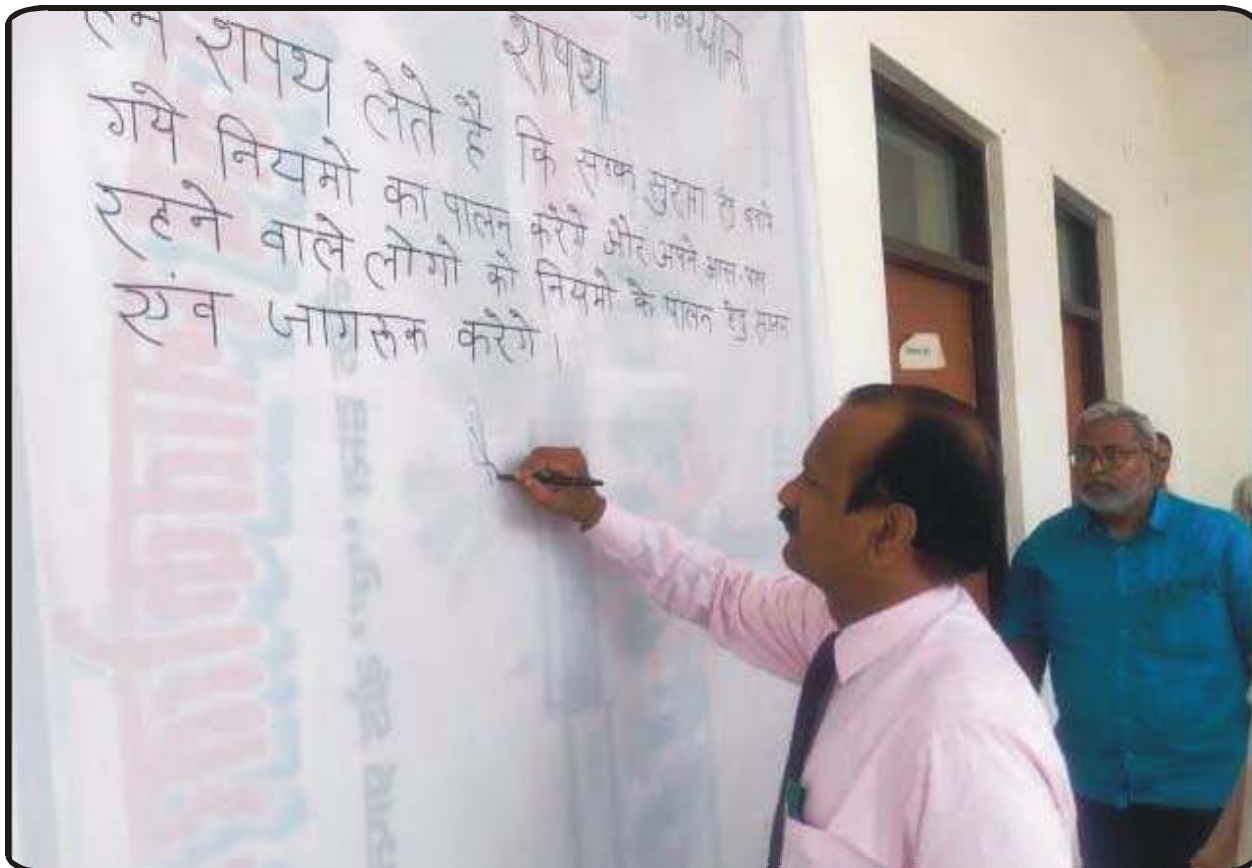 अभियान
शपथ
हम शपथ लेते है कि सड़क सुरक्षा हेतु बनाये
गये नियमो का पालन करेगे और अपने आस पास
रहने वाले लोगो को नियमो के पालन हेतु
एंव जागरूक करेगे।